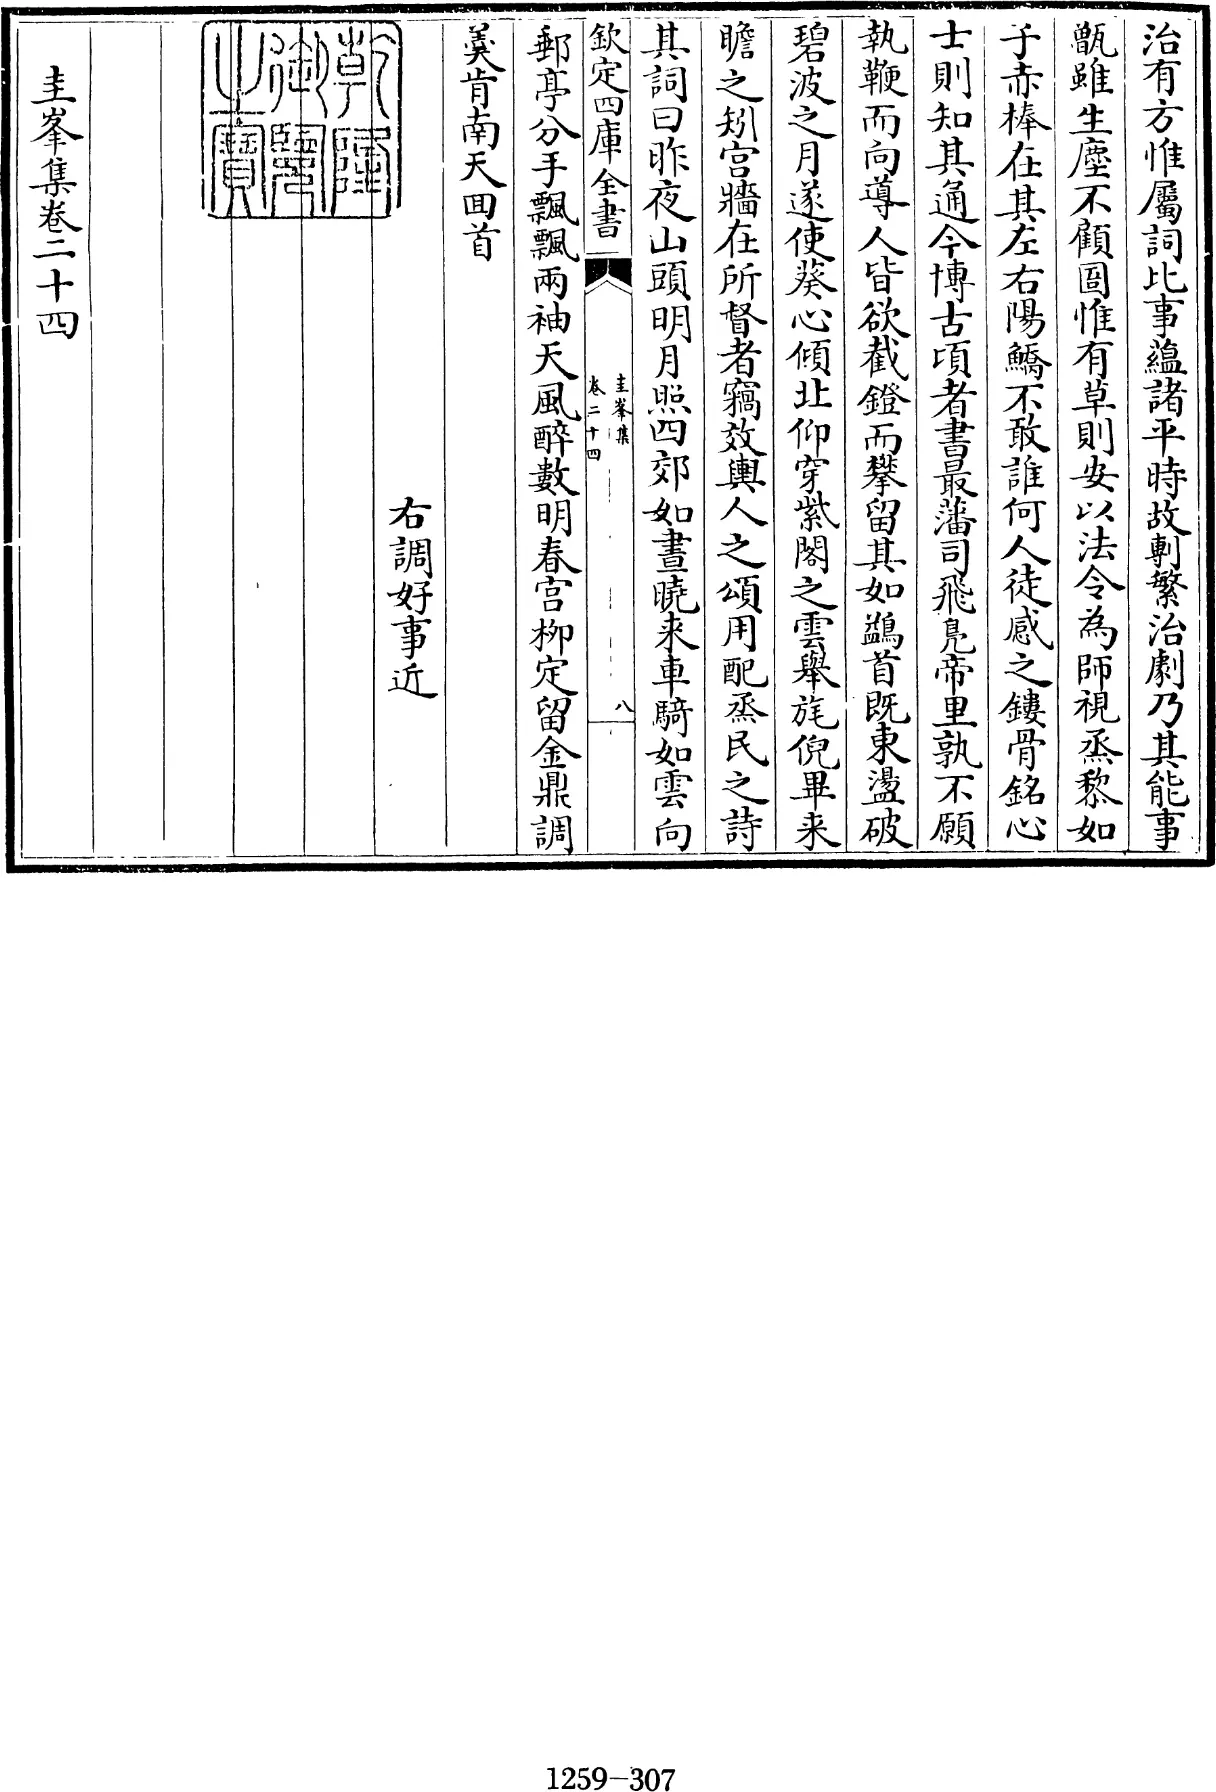 治有方惟屬詞比事蘊諸平時故剸繁治劇乃其能事
甑雖生塵不顧圄惟有草則安以法令為師視烝黎如
子赤棒在其左右陽鱎不敢誰何人徒感之鏤骨銘心
士則知其通今博古頃者書最藩司飛凫帝里孰不願
執鞭而向導人皆欲截鐙而攀留其如鷁首既東盪破
碧波之月遂使葵心傾北仰穿紫閣之雲舉旄倪畢来
瞻之矧宫牆在所督者竊效輿人之頌用配烝民之詩
其詞曰昨夜山頭明月照四郊如晝曉来車騎如雲向
欽定四庫全書
圭峯集
卷二十四
八
郵亭分手飄飄兩袖天風醉數明春宫柳定留金鼎調
羮肯南天回首
右調好事近
乾隆御覽之寶
圭峯集卷二十四
1259-307